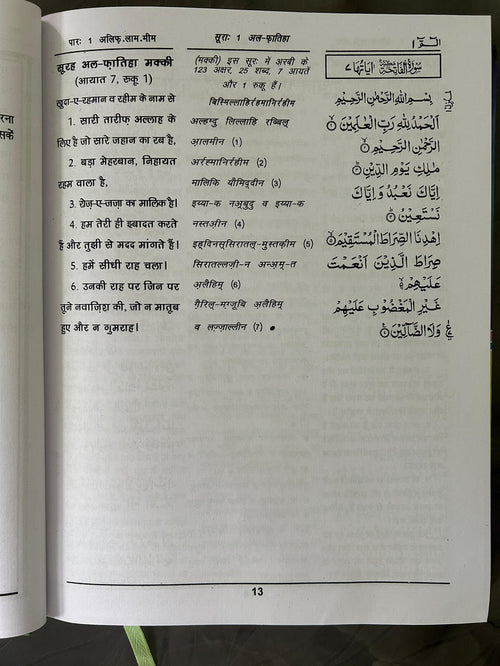 रना
सकें
पारः 1 अलिफ़.लाम.मीम
सूराः 1 अल-फ़ातिहा
الٓمّٓ ١
सूरह अल-फ़ातिहा मक्की
(आयात 7, रुकू 1)
ख़ुदा-ए-रहमान व रहीम के नाम से
1. सारी तारीफ़ अल्लाह के
लिए है जो सारे जहान का रब है,
2. बड़ा मेहरबान, निहायत
रहम वाला है,
3. रोज़-ए-जज़ा का मालिक है।
4. हम तेरी ही इबादत करते
हैं और तुझी से मदद मांगते हैं।
5. हमें सीधी राह चला।
6. उनकी राह पर जिन पर
तूने नवाज़िश की, जो न मातूब
हुए और न गुमराह।
(मक्की) इस सूरः में अरबी के
123 अक्षर, 25 शब्द, 7 आयतें
और 1 रुकू हैं।
बिस्मिल्लाहिर्रहमानिर्रहीम
अल्हम्दु लिल्लाहि रब्बिल्
आ़लमीन (1)
अर्रहमानिर्रहीम (2)
मालिकि यौमिद्दीन (3)
इय्या-क नअ्बुदु व इय्या-क
नस्तअ़ीन (4)
इह्दिनस्सिरातल्-मुस्तक़ीम (5)
सिरातल्लज़ी-न अन्अ़म्-त
अ़लैहिम् (6)
ग़ैरिल्-मग़्जूबि अ़लैहिम्
व लज़्ज़ाल्लीन (7)
سُوْرَةُ الْفَاتِحَةِ اٰيَاتُهَا ٧
بِسْمِ اللهِ الرَّحْمٰنِ الرَّحِيْمِ
اَلْحَمْدُ لِلّٰهِ رَبِّ الْعٰلَمِيْنَ ۝
الرَّحْمٰنِ الرَّحِيْمِ ۝
مٰلِكِ يَوْمِ الدِّيْنِ ۝
اِيَّاكَ نَعْبُدُ وَ اِيَّاكَ
نَسْتَعِيْنُ ۝
اِهْدِنَا الصِّرَاطَ الْمُسْتَقِيْمَ ۝
صِرَاطَ الَّذِيْنَ اَنْعَمْتَ
عَلَيْهِمْ
غَيْرِ الْمَغْضُوْبِ عَلَيْهِمْ
وَلَا الضَّآلِّيْنَ ۝
13